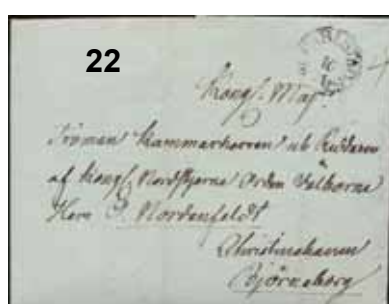 22
Kongl. Maj
Kammarherren och Riddaren
af Kongl. Nordstjerne Orden Välborne
Herr P. Nordenfeldt
Christinehamn
Björneborg